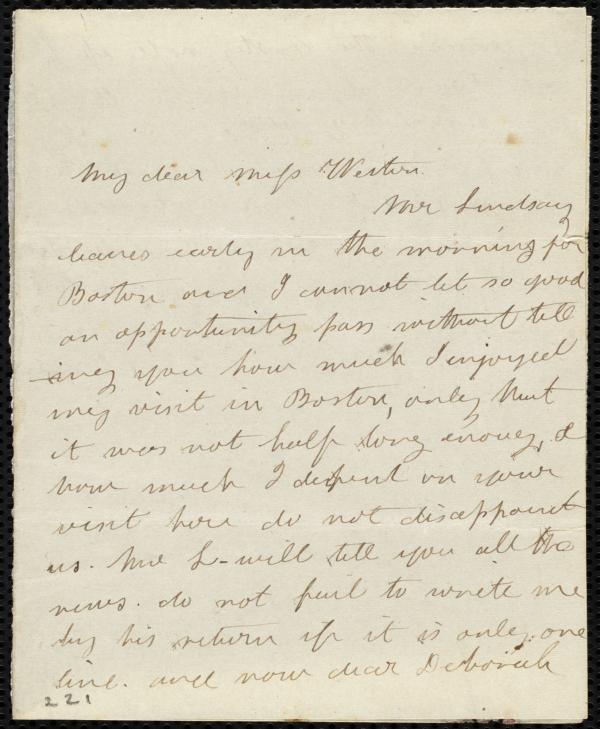 My dear Miss Weston.
Mr Lindsay
leaves early in the morning for
Boston and I cannot let so good
an opportunity pass without tell
-ing you how much I enjoyed
my visit in Boston, only that
it was not half long enoug, &
how much I depend on your
visit here do not disappoint
us. Mr L- will tell you all the
news. do not fail to write me
by his return if it is only one
line. and now dear Deborah
221